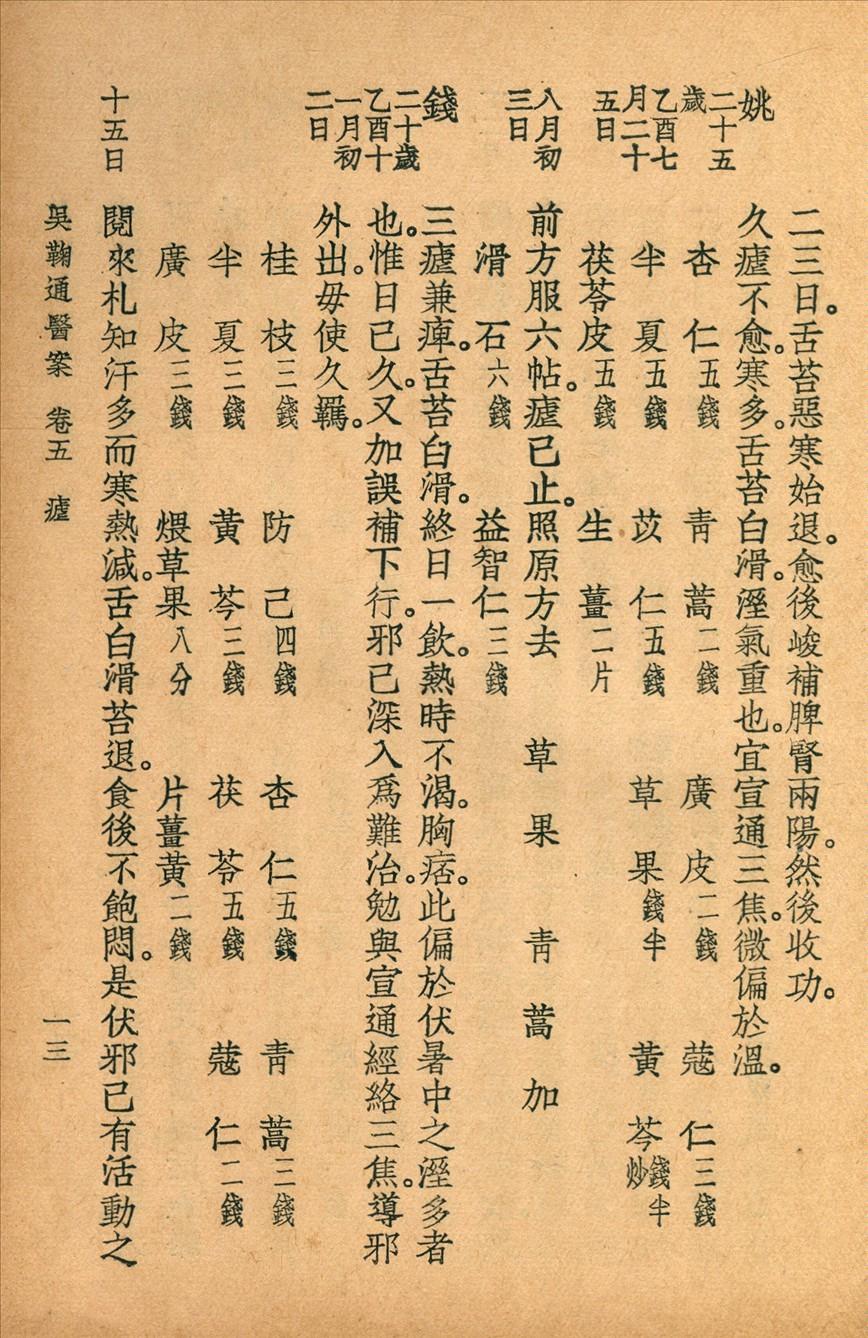 二三日。舌苔惡寒始退。愈後峻補脾腎兩陽。然後收功。
姚
二十五
歲
乙酉七
月二十
五日
久瘧不愈。寒多。舌苔白滑。溼氣重也。宜宣通三焦。微偏於溫。
杏仁五錢　青蒿二錢　廣皮二錢　蔻仁三錢
半夏五錢　苡仁五錢　草果錢半　黃芩錢半炒
茯苓皮五錢　生薑二片
八月初
三日
前方服六帖。瘧已止。照原方去　草果　青蒿加
滑石六錢　益智仁三錢
錢
二十歲
乙酉十
一月初
二日
三瘧兼痺。舌苔白滑。終日一飲。熱時不渴。胸痞。此偏於伏暑中之溼多者
也。惟日已久。又加誤補下行。邪已深入爲難治。勉與宣通經絡三焦。導邪
外出。毋使久羈。
桂枝三錢　防己四錢　杏仁五錢　青蒿三錢
半夏三錢　黃芩三錢　茯苓五錢　蔻仁二錢
廣皮三錢　煨草果八分　片薑黃二錢
十五日
閱來札知汗多而寒熱減。舌白滑苔退。食後不飽悶。是伏邪已有活動之
吳鞠通醫案　卷五　瘧　一三